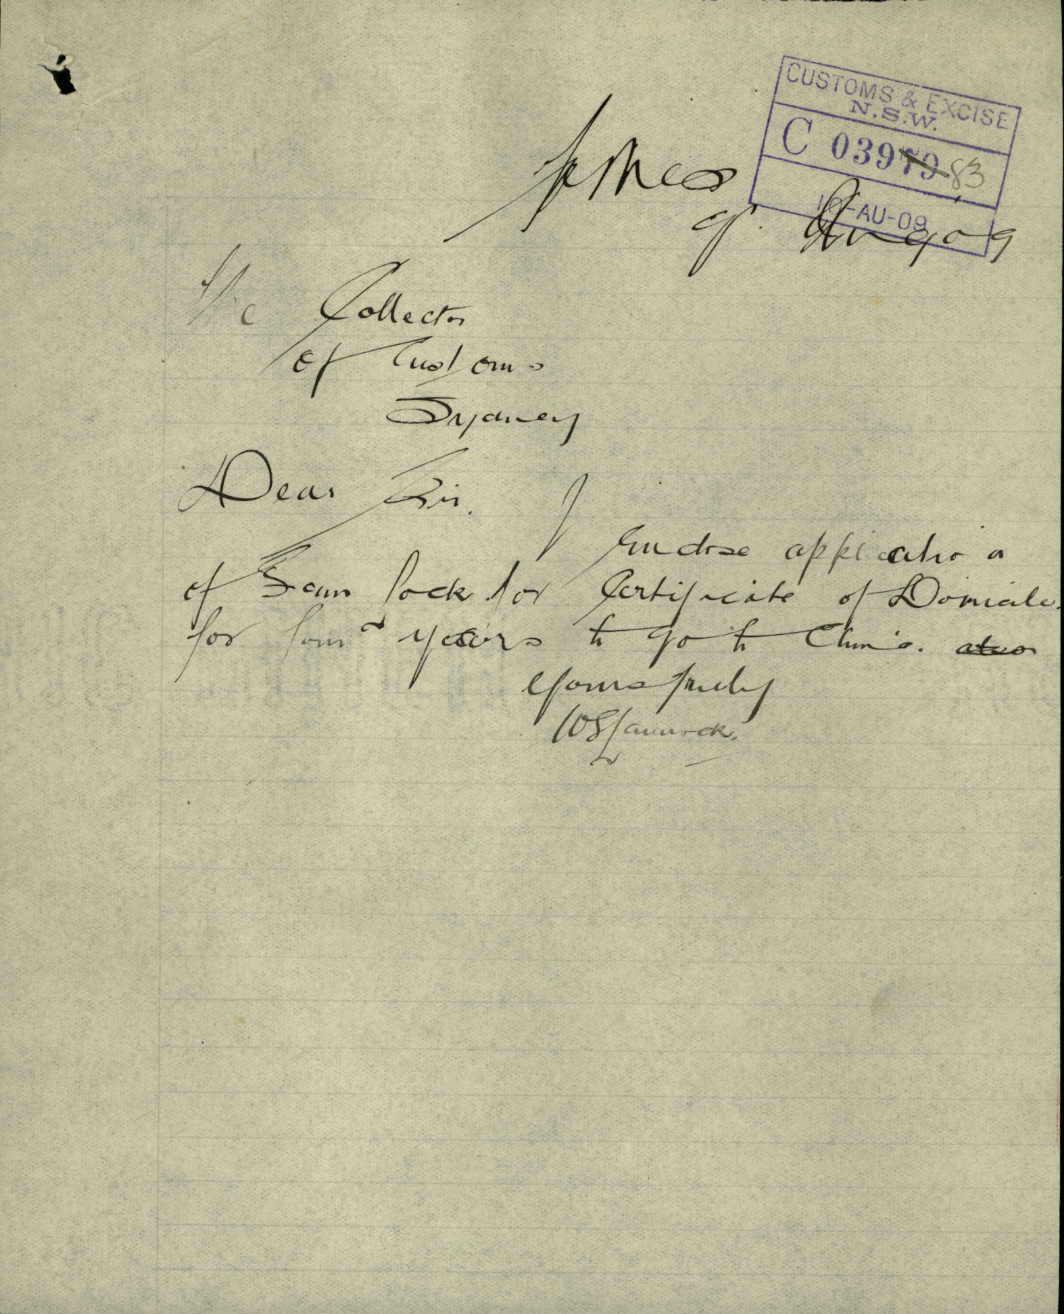 CUSTOMS & EXCISE
N.S.W.
C 03979 83
AU-09
9. Aug 09
The Collector
of Customs
Sydney
Dear Sir.
I Enclose application
of Sam Pock for Certificate of Domicile
for four years to go to China.
Yours truly